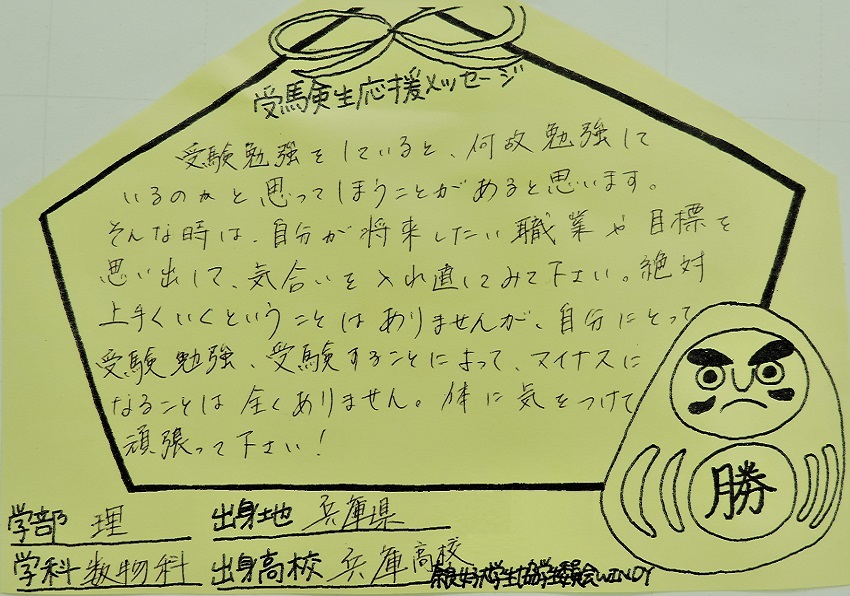 受験生応援メッセージ
受験勉強をしていると、何故勉強して
いるのかと思ってしまうことがあると思います。
そんな時は、自分が将来したい職業や目標を
思い出して、気合いを入れ直してみて下さい。絶対
上手くいくということはありませんが、自分にとって
受験勉強、受験することによって、マイナスに
なることは全くありません。体に気をつけて
頑張って下さい!
勝
学部 理 出身地 兵庫県
学科 数物科 出身高校 兵庫高校
奈良女子大学生協学生委員会WINDY